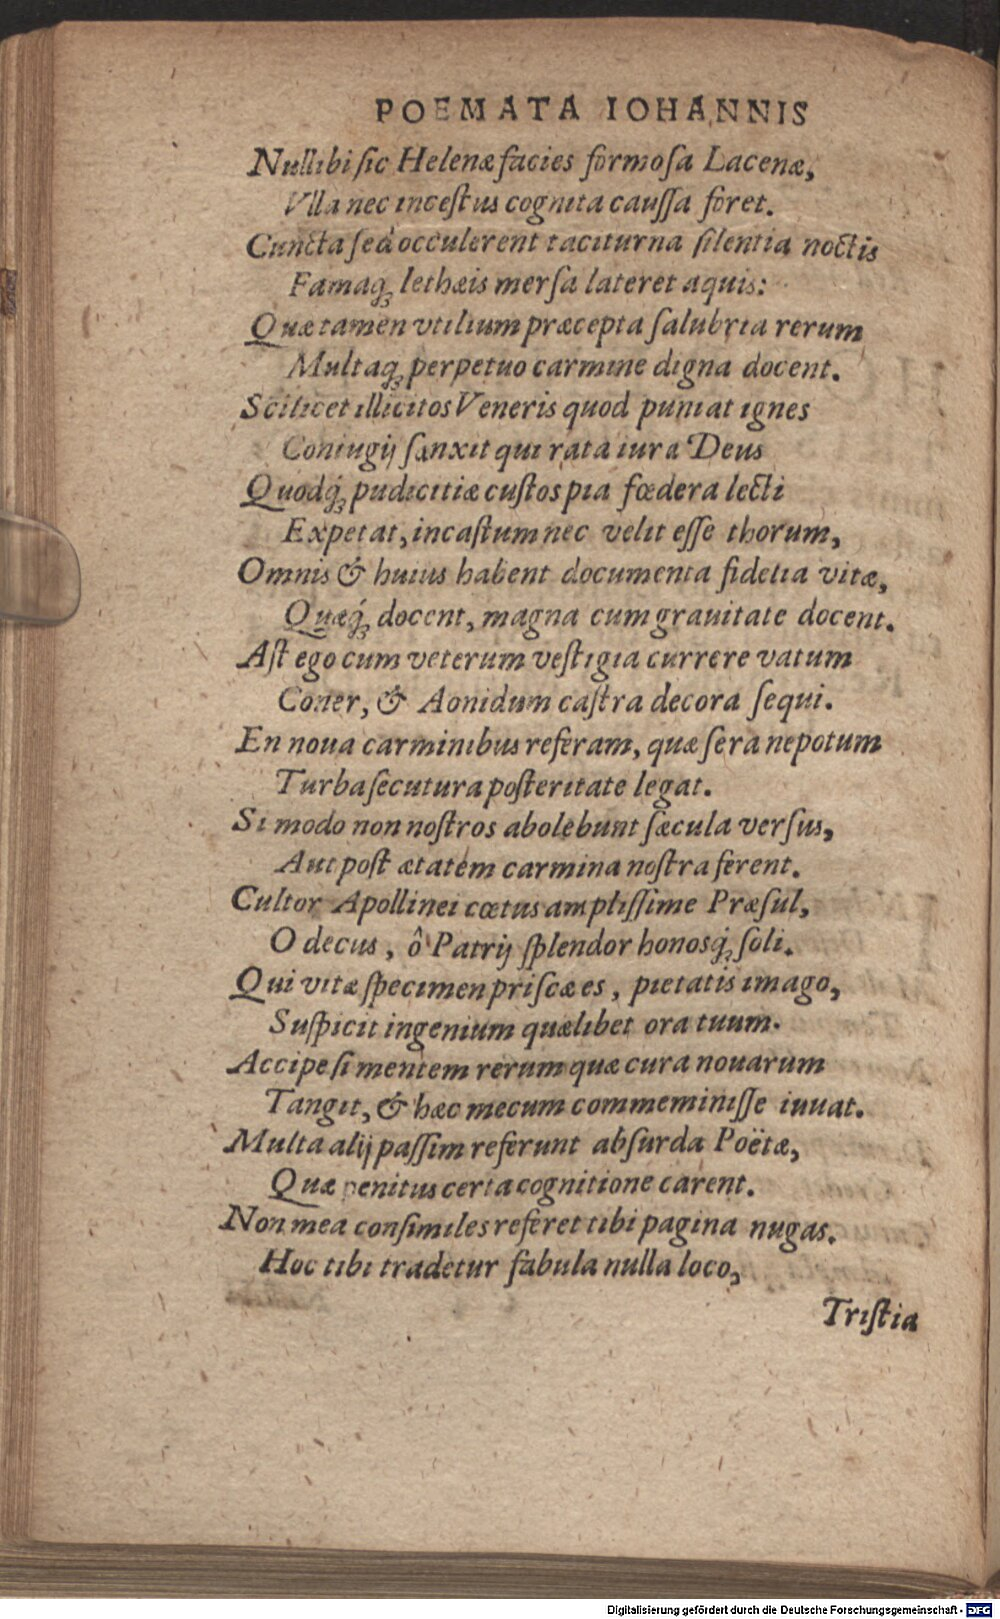 POEMATA IOHANNIS
Nullibi ſic Helenæ facies formoſa Lacenæ,
Vlla nec inceſtus cognita cauſſa foret.
Cuncta ſed occulerent taciturna ſilentia noctis
Famaq́ꝫ lethæis merſa lateret aquis:
Quæ tamen vtilium præcepta ſalubria rerum
Multaqꝫ perpetuo carmine digna docent.
Scilicet illicitos Veneris quod puniat ignes
Coniugij ſanxit qui rata iura Deus
Quodq́ꝫ pudicitiæ cuſtos pia fœdera lecti
Expetat, incaſtum nec velit eſſe thorum,
Omnis & huius habent documenta fidelia vitæ,
Quæq́ꝫ docent, magna cum grauitate docent.
Aſt ego cum veterum veſtigia currere vatum
Coner, & Aonidum caſtra decora ſequi.
En noua carminibus referam, quæ ſera nepotum
Turba ſecutura poſteritate legat.
Si modo non noſtros abolebunt ſæcula verſus,
Aut poſt ætatem carmina noſtra ferent.
Cultor Apollinei cœtus ampliſſime Præſul,
O decus, ô Patrij ſplendor honosq́ꝫ ſoli.
Qui vitæ ſpecimen priſcæ es, pietatis imago,
Suſpicit ingenium quælibet ora tuum.
Accipe ſi mentem rerum quæ cura nouarum
Tangit, & hæc mecum commeminiſſe iuuat.
Multa alij paſſim referunt abſurda Poëtæ,
Quæ penitus certa cognitione carent.
Non mea conſimiles referet tibi pagina nugas.
Hoc tibi tradetur fabula nulla loco,
Triſtia
Digitalisierung gefördert durch die Deutsche Forschungsgemeinschaft - DFG